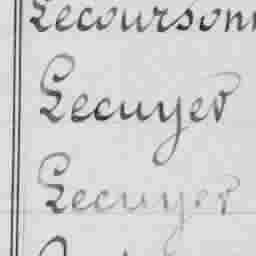 Lecourson
Lecuyer
Lecuyer